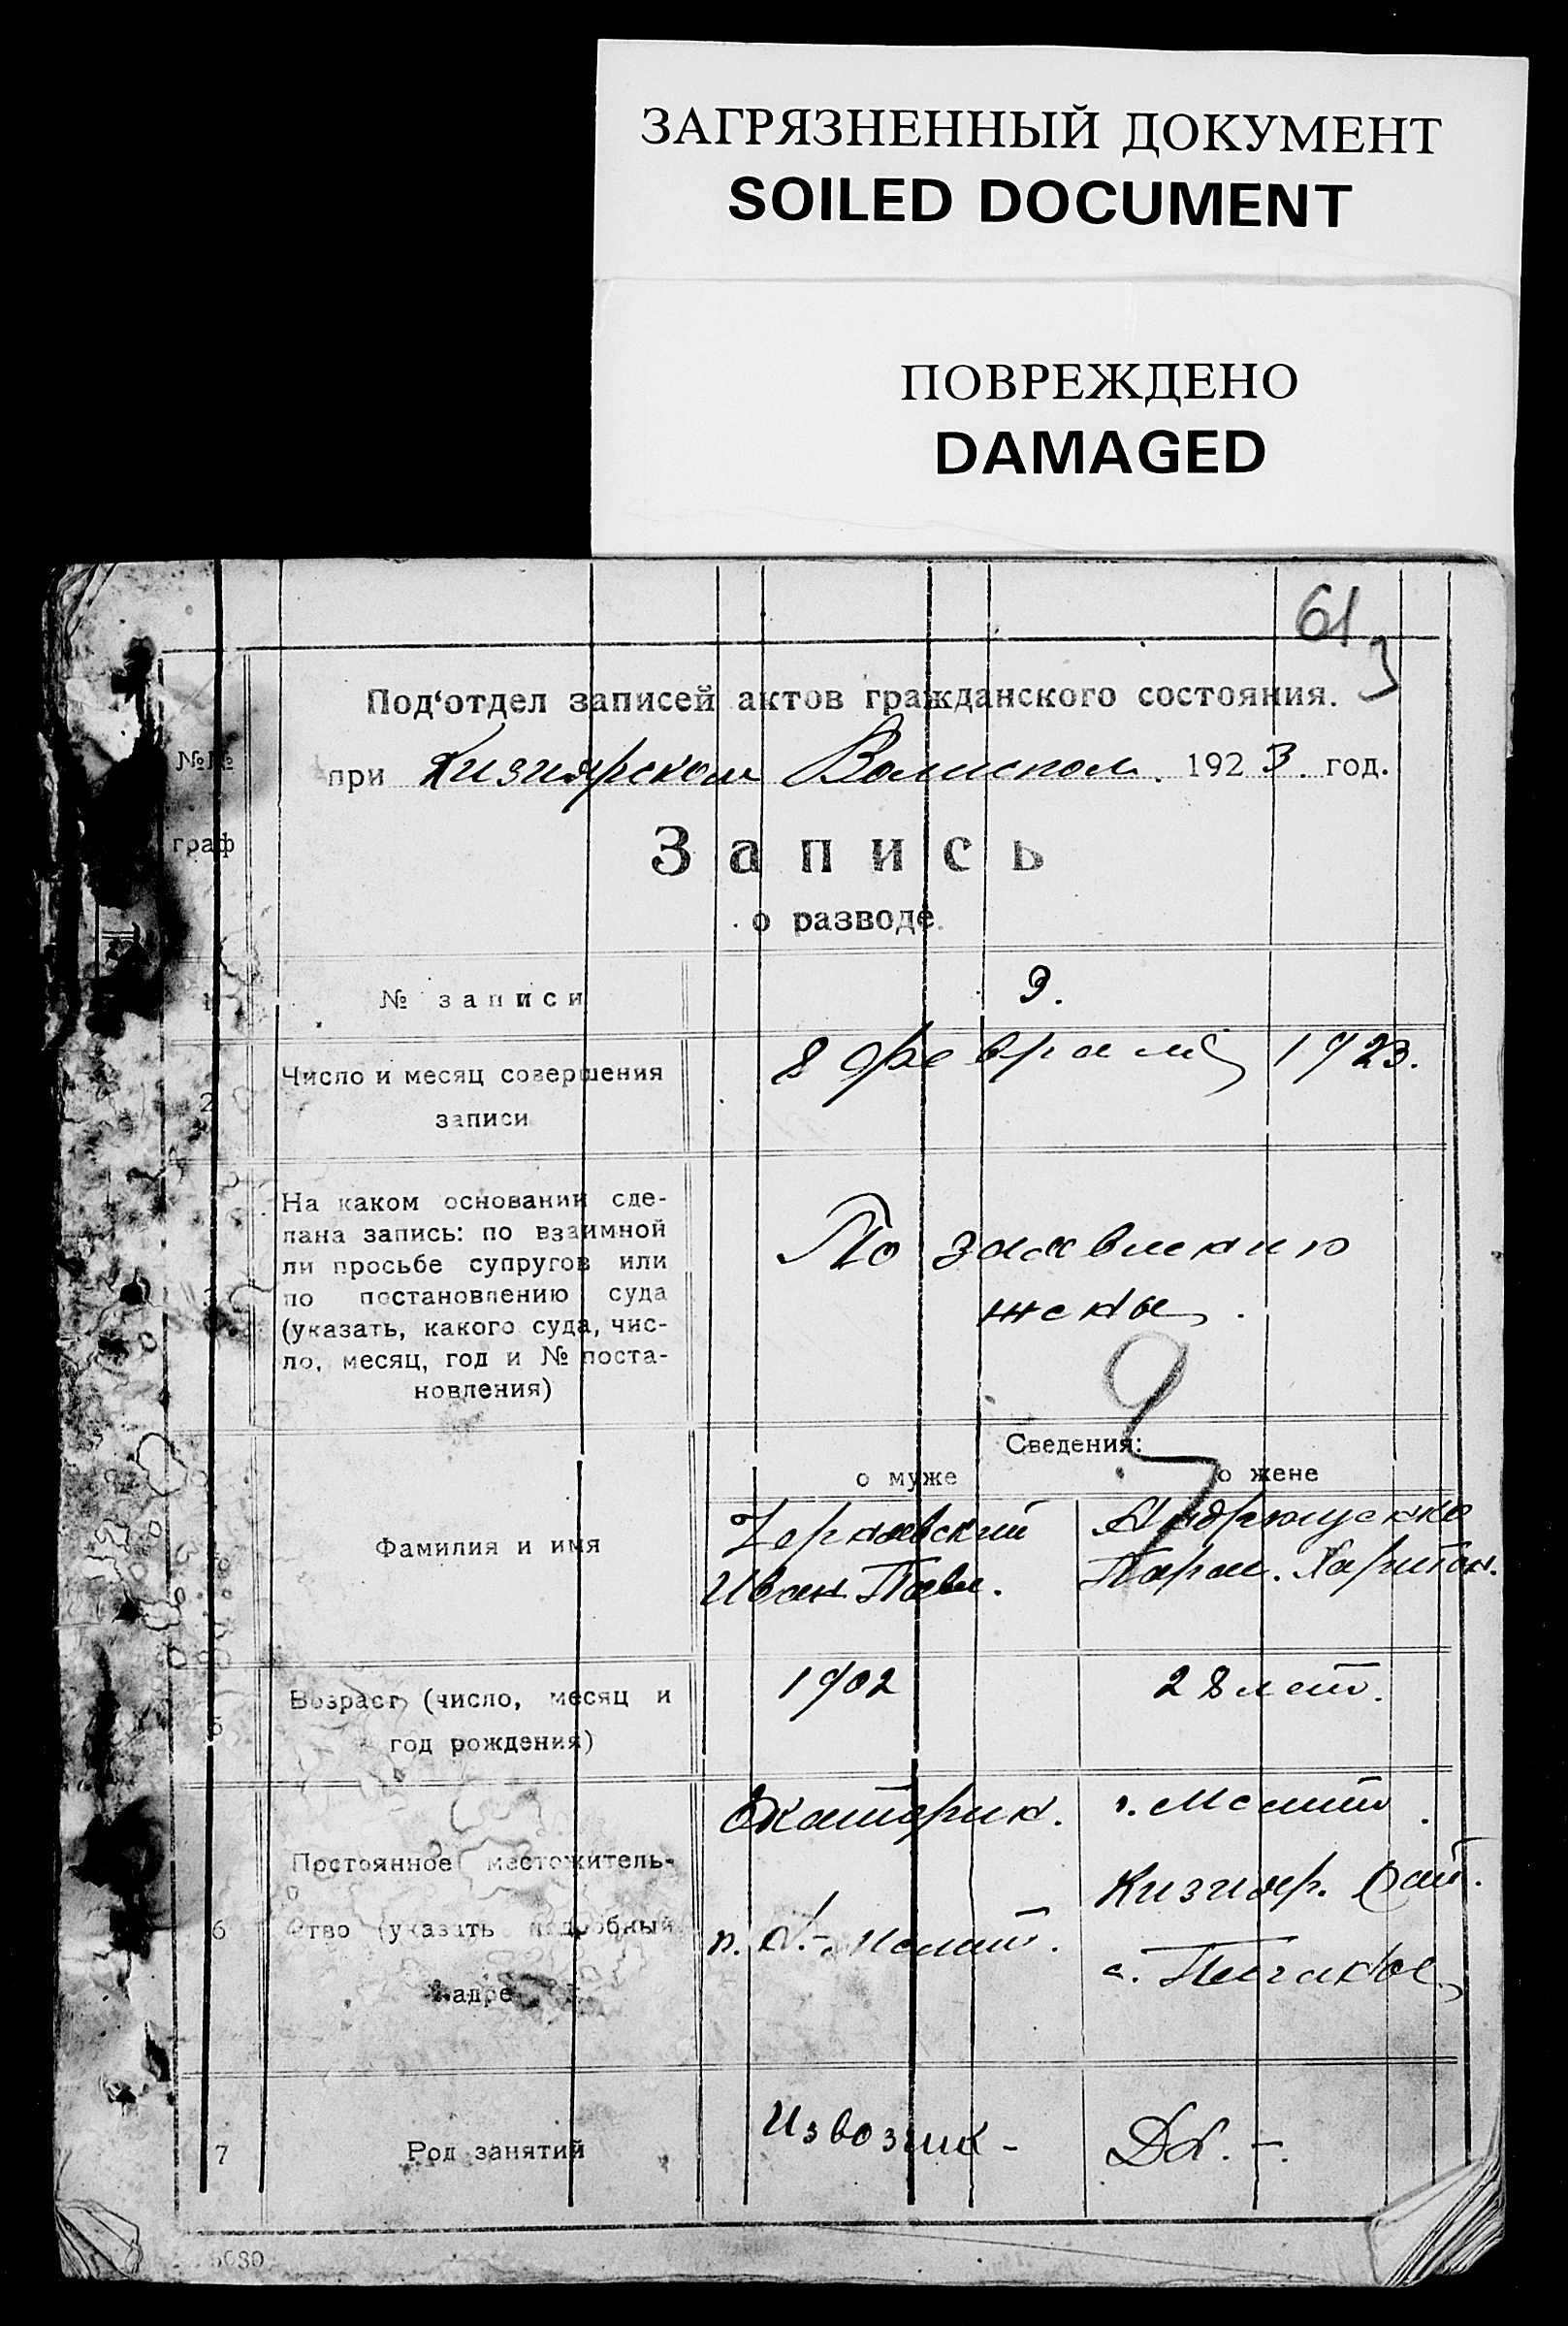 ЗАГРЯЗНЕННЫЙ ДОКУМЕНТ
SOILED DOCUMENT
ПОВРЕЖДЕНО
DAMAGED
61
3
Под‘отдел записей актов гражданского состояния.
№№ граф
при Кизиярском Волисполк. 1923 год.
Запись
о разводе.
1 № записи 9.
2 Число и месяц совершения
записи
8 февраля 1923.
3 На каком основании сде-
лана запись: по взаимной
ли просьбе супругов или
по постановлению суда
(указать, какого суда, чис-
ло, месяц, год и № поста-
новления)
По заявлению
жены.
9
Сведения:
о муже о жене
Фамилия и имя
Чернявский Андрющенко
Иван Павл. Парас. Харитон.
5 Возраст (число, месяц и
год рождения)
1902 28 лет.
6 Постоянное местожитель-
ство (указать подробный
адрес
Екатерин. г. Мелит.
Кизияр. вол.
с. Песчаное
7 Род занятий
Извозчик - Дх. -.